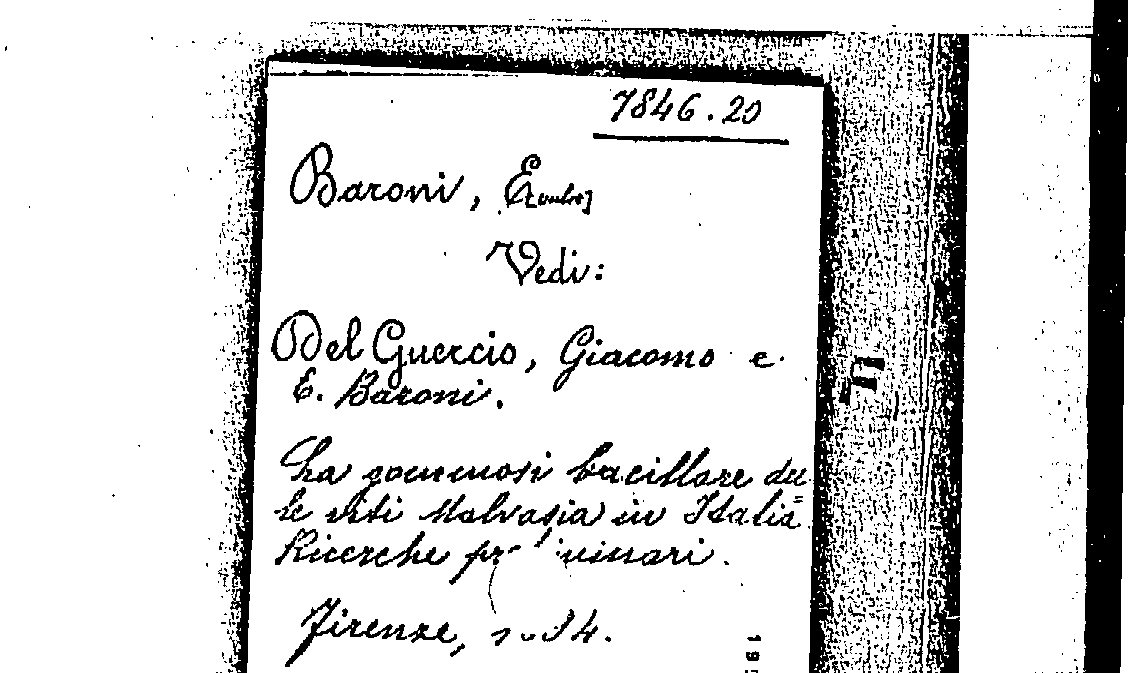 7846.20
Baroni, E
Vedi:
Del Guercio, Giacomo e
E. Baroni.
La gommosi bacillare del
le viti Malvasia in Italia
Ricerche
Firenze,